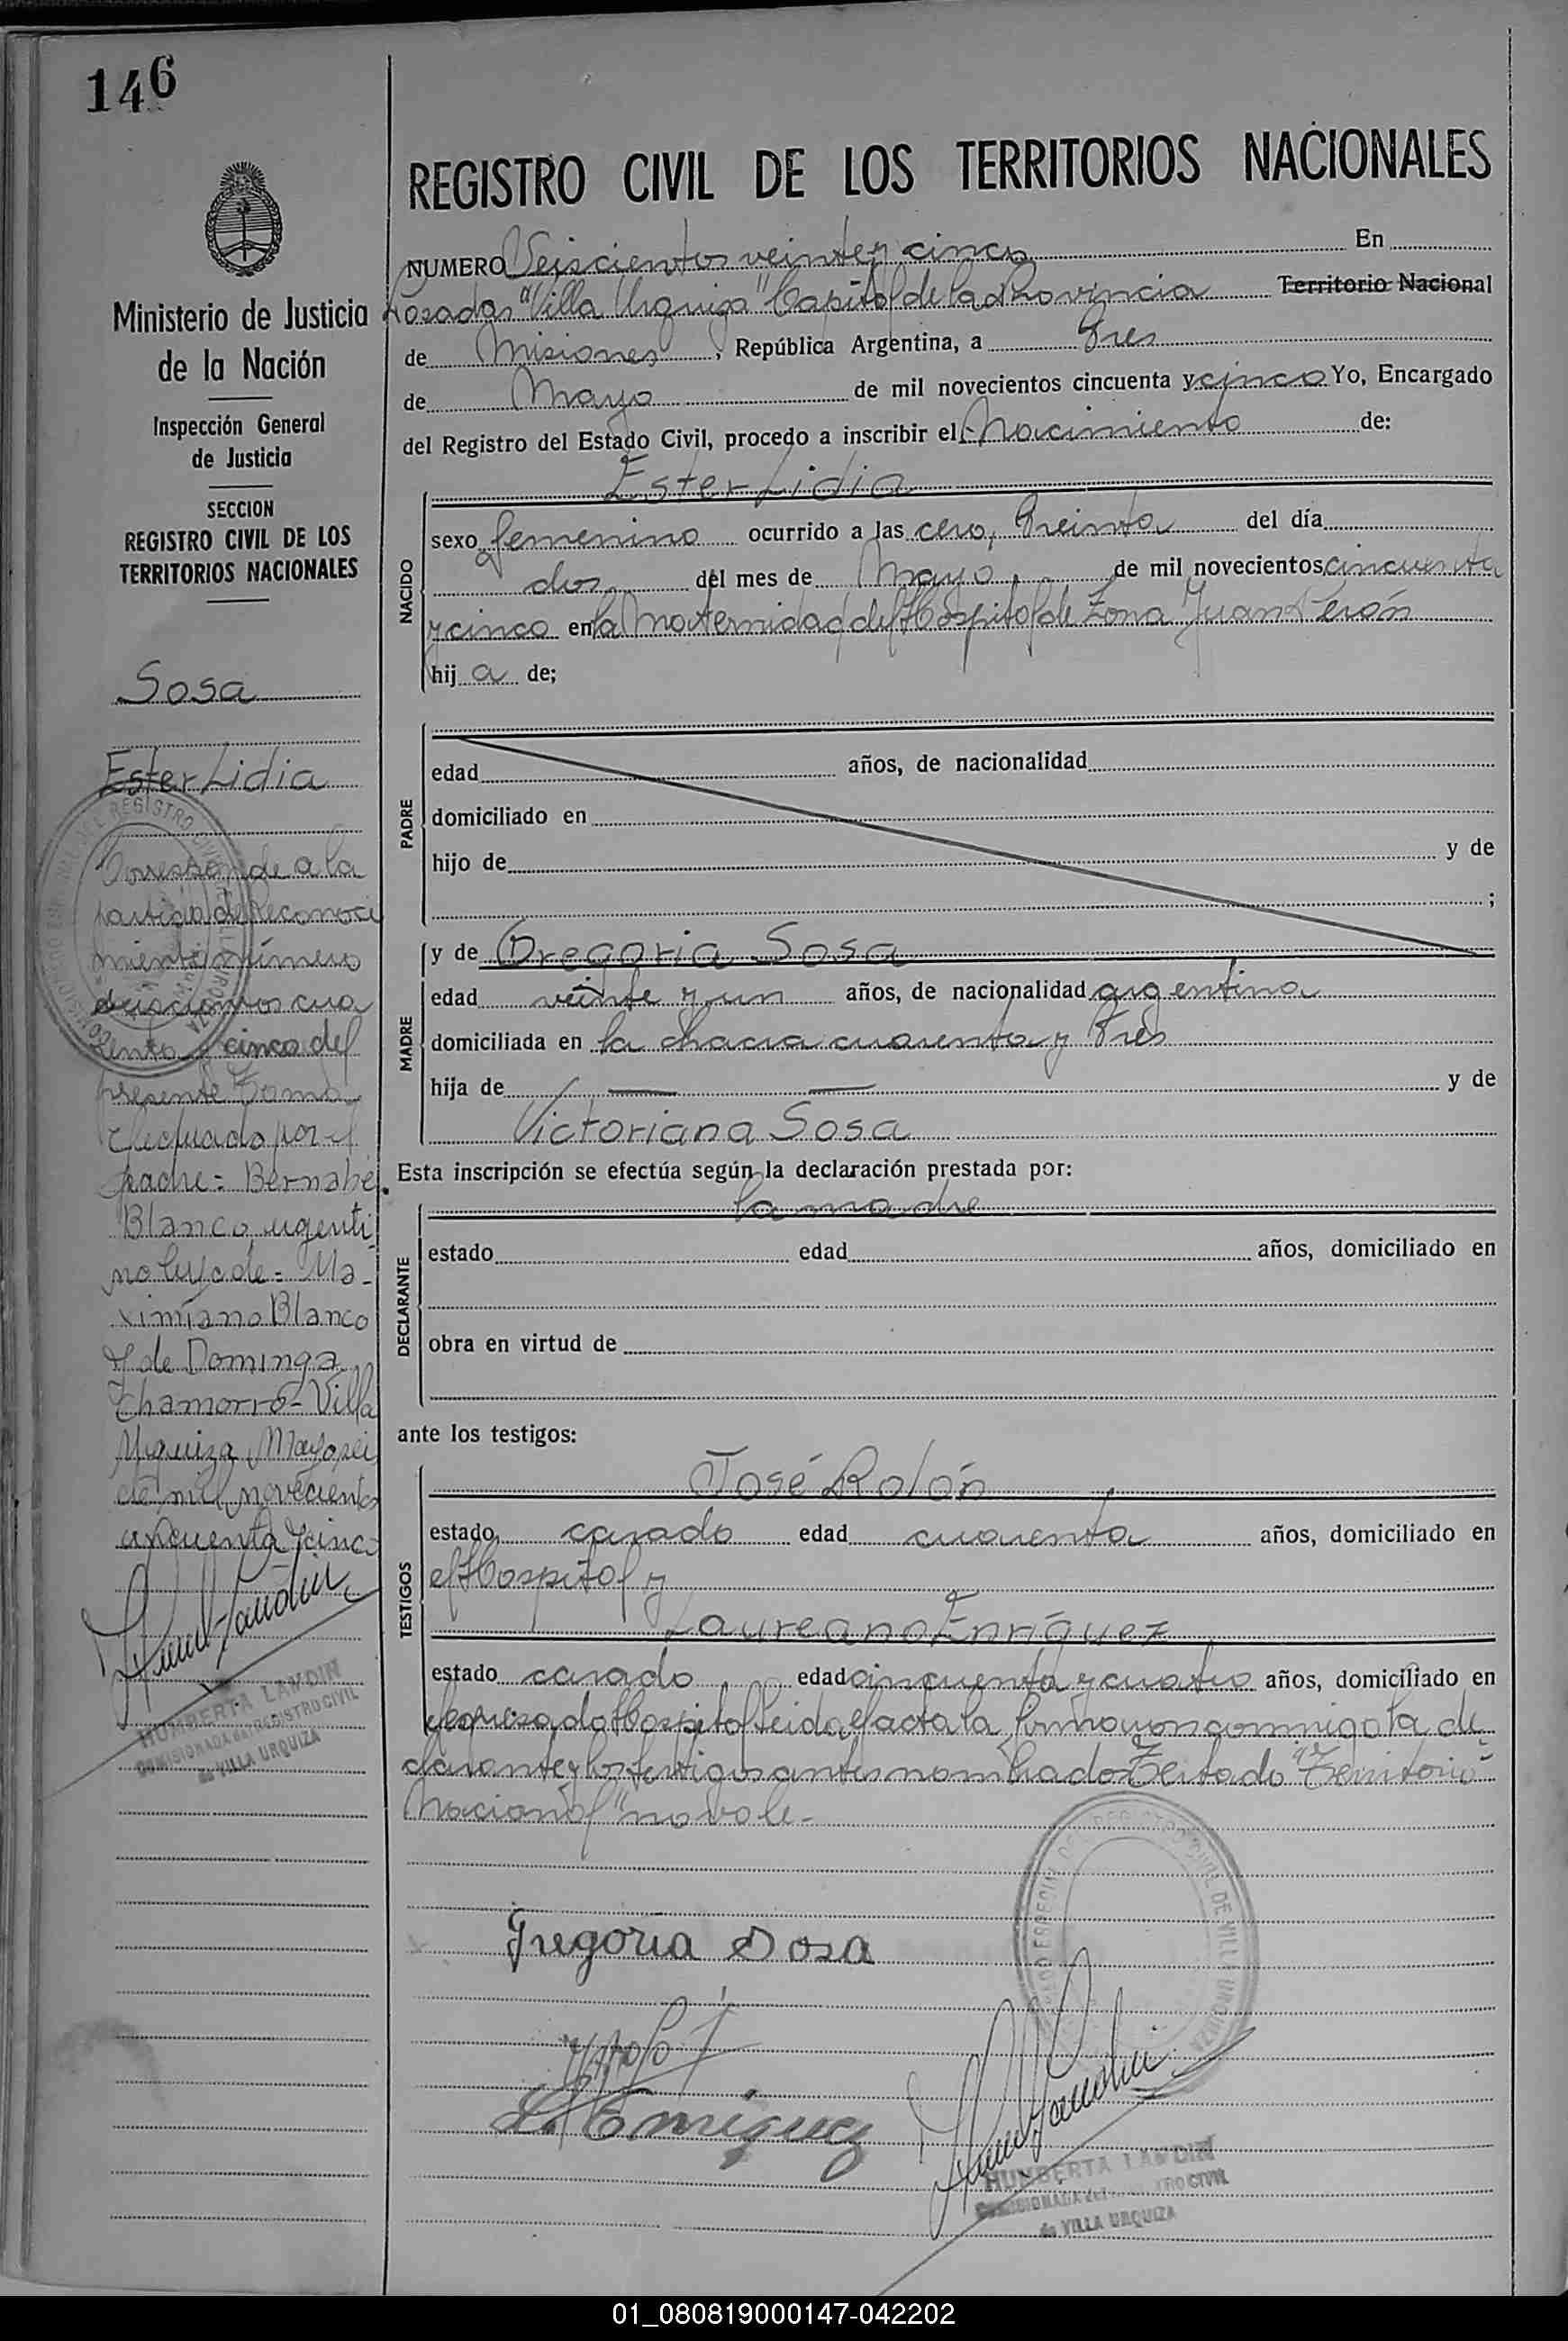 146
REGISTRO CIVIL DE LOS TERRITORIOS NACIONALES
NUMERO Seiscientos veinte y cinco En
Posadas "Villa Urquiza" Capital de la Provincia Territorio Nacional
de Misiones, República Argentina, a Tres
de Mayo de mil novecientos cincuenta y cinco Yo, Encargado
del Registro del Estado Civil, procedo a inscribir el Nacimiento de:
Ester Lidia
NACIDO
sexo femenino ocurrido a las cero, Treinta del día
dos del mes de Mayo de mil novecientos cincuenta
y cinco en la Maternidad del Hospital de Zona Juan Perón
hij a de;
PADRE
edad años, de nacionalidad
domiciliado en
hijo de y de
;
MADRE
y de Gregoria Sosa
edad veinte y un años, de nacionalidad argentina
domiciliada en la chacra cuarenta y Tres
hija de y de
Victoriana Sosa
Esta inscripción se efectúa según la declaración prestada por:
la madre
DECLARANTE
estado edad años, domiciliado en
obra en virtud de
ante los testigos:
TESTIGOS
José Rolón
estado casado edad cuarenta años, domiciliado en
el Hospital y
Laureano Enríquez
estado casado edad cincuenta y cuatro años, domiciliado en
el expresado Hospital Leida el acta la firmaron conmigo la de
clarante y los testigos antes nombrados Testado "Territorio
Nacional" no vale-
Gregoria Sosa
L. Enriquez
HUMBERTA LANDIN
COMISIONADA del REGISTRO CIVIL
de VILLA URQUIZA
Ministerio de Justicia
de la Nación
Inspección General
de Justicia
SECCION
REGISTRO CIVIL DE LOS
TERRITORIOS NACIONALES
Sosa
Ester Lidia
Corresponde a la
partida de Reconoci
miento número
seiscientos cua
renta y cinco del
presente Tomo
efectuado por el
padre = Bernabé
Blanco, argenti
no hijo de = Ma-
ximiano Blanco
y de Dominga
Chamorro - Villa
Urquiza, Mayo seis
de mil novecientos
cincuenta y cinco
HUMBERTA LANDIN
COMISIONADA del REGISTRO CIVIL
de VILLA URQUIZA
01_080819000147-042202